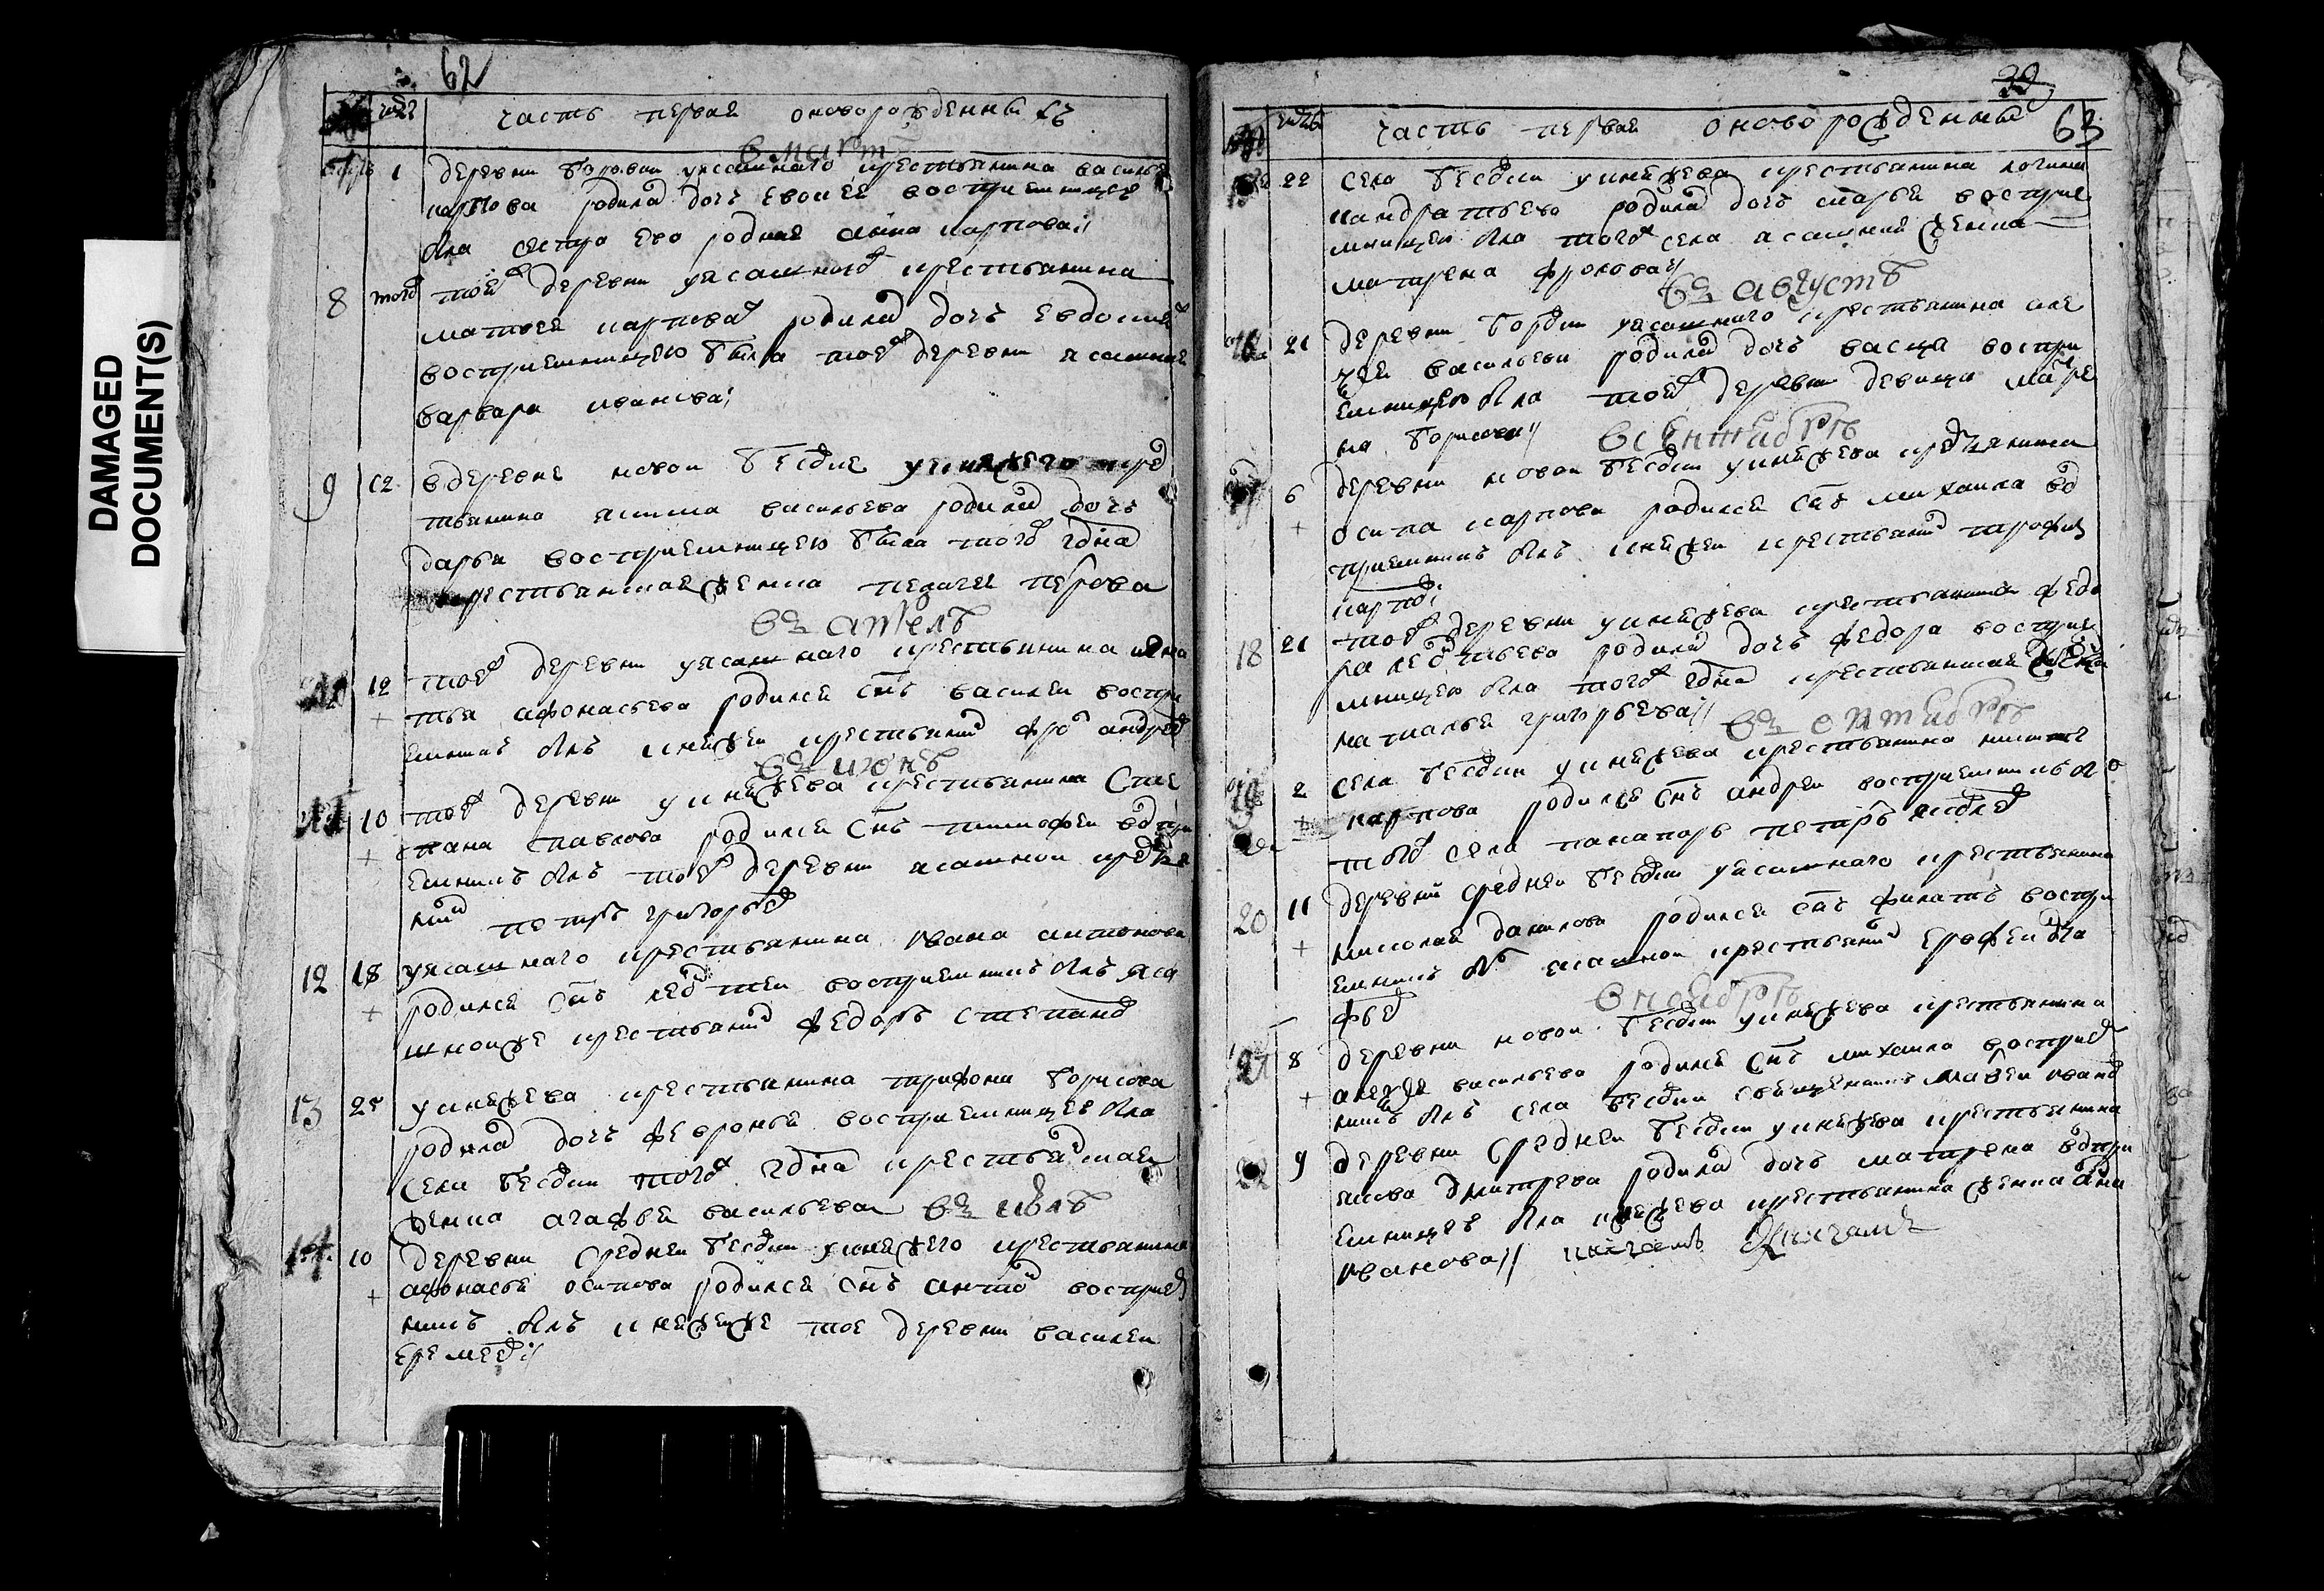 DAMAGED
DOCUMENT(S)
62
часть первая оноворожденныхъ
в март
1 деревни уясашнаго крестьянина василья
карпова родилас дочь восприемницею
бла сестра ево родная анна карпова
8 тогож тоеж деревни уясашного крестьянина
матвея карпова родилас дочь евдокия
восприемницею была тоеж деревни ясашная
варвара иванова
9 12 вдеревне новои бездне
тьянина якима васильева родилас дочь
дарья восприемницею была тогож гдна
крестьянская женка пелагея петрова
въ апрелѣ
12 тоеж деревни уясашнаго крестьянина
тья афонасьева родился снъ василеи воспри
емникъ блъ княжеи крестьянин фрол андреев
въ июнѣ
10 тоеж деревни укняжева крестьянина сте
пана павлова родился снъ тимофеи воспри
емникъ блъ тоеж деревни ясашнои крестья
нин петръ григорьев
12 18 уясашнаго крестьянина ивана антонова
родился снъ леонтеи восприемникъ блъ яса
шноиже крестьянин федоръ степанов
13 25 укняжева крестьянина трифона борисова
родилас дочь февронья восприемницею бла
села бездны тогож гдна крестьянская
женка агафья васильева въ июлѣ
14 10 деревни среднеи бездны укняжего крестьянина
афонасья осипова родился снъ антон восприем
никъ блъ княжеиже тое деревни василеи
еремеев
39
63
часть первая оноворожденных
22 села бездны укняжева крестьянина логина
кандратьева родилас дочь марья восприе
мницею бла тогож села ясашная женка
матрена фролова
въ августѣ
21 деревни уясашнаго крестьянина але
ѯея васильева родилас дочь васса воспри
емницею бла тоеж деревни девица матре
на борисова
в сентябрѣ
6 деревни новои бездны укняжева крестьянина
осипа карпова родился снъ михаила вос
приемникъ блъ княжеи крестьянин трофим
карпов
18 21 тоеж деревни укняжева крестьянина федо
ра леонтьева родилас дочь федора восприе
мницею бла тогож гдна крестьянская женка
наталья григорьева
въ октябрѣ
19 2 села бездны укняжева крестьянина никиты
карпова родился снъ андреи восприемникъ бл
тогож села панамарь петръ яковлев
20 11 деревни среднеи бездны уясашнаго крестьянина
николая данилова родился снъ филатъ воспри
емникъ бл ясашнои крестьянин ерофеи ага
фьев
в ноябрѣ
21 8 деревни новои бездны укняжева крестьянина
алеѯея васильева родился снъ михаила восприем
никъ блъ села бездны священникъ матвеи иванов
22 9 деревни среднеи бездны укняжева крестьянина
якова дмитрева родилас дочь матрена воспри
емницею бла княжева крестьянина женка анна
иванова